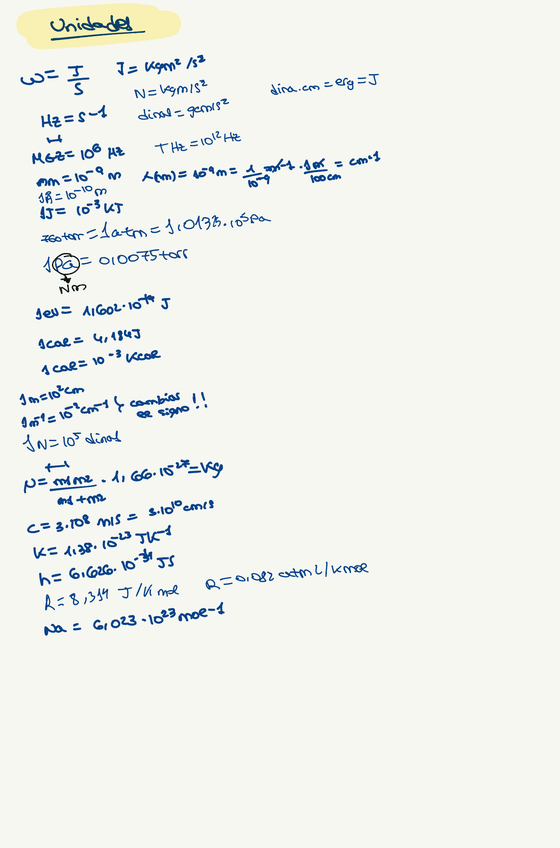 Unidades
ω = J/s   J = Kgm²/s²
N = Kgm/s²
dina.cm = erg = J
Hz = s-1   dinas = gcm/s²
MGZ = 10⁶ Hz   THz = 10¹² Hz
nm = 10⁻⁹ m   λ(nm) = 10⁻⁹ m = 1/10⁻⁹ m-1 · 1m/100cm = cm-1
1Å = 10⁻¹⁰ m
1J = 10⁻³ KJ
760torr = 1atm = 1,0133·10⁵Pa
1Pa = 0,0075torr
Nm
1eV = 1,602·10⁻¹⁹ J
1cal = 4,184J
1cal = 10⁻³ Kcal
1m = 10²cm
1m⁻¹ = 10⁻²cm⁻¹ } cambias de signo!!
1N = 10⁵ dinas
μ = m1m2/m1+m2 · 1,66·10⁻²⁷ = Kg
C = 3·10⁸ m/s = 3·10¹⁰ cm/s
K = 1,38·10⁻²³ JK⁻¹
h = 6,626·10⁻³⁴ JS
R = 8,314 J/Kmol   R = 0,082 atm L/Kmol
Na = 6,023·10²³ mol-1